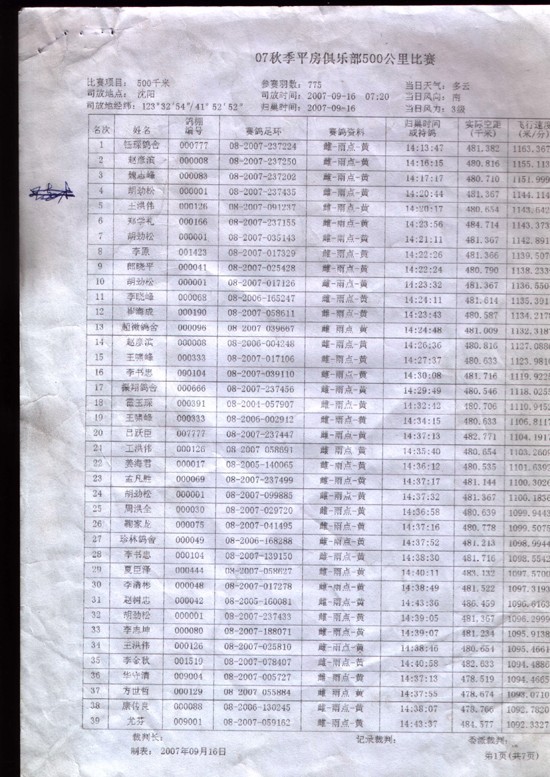 07秋季平房俱乐部500公里比赛
比赛项目: 500千米 参赛羽数: 775 当日天气: 多云
司放地点: 沈阳 司放时间: 2007-09-16 07:20 当日风向: 南
司放地经纬: 123°32′54″/41°52′52″ 归巢时间: 2007-09-16 当日风力: 3级
名次 姓名 鸽棚编号 赛鸽足环 赛鸽资料 归巢时间或持鸽 实际空距(千米) 飞行速度(米/分)
1 000777 08-2007-237224 雌-雨点-黄 14:13:47 481.382 1163.367
2 赵彦滨 000008 08-2007-237250 雌-雨点-黄 14:16:15 480.816 1155.113
3 魏志峰 000083 08-2007-237202 雌-雨点-黄 14:17:17 480.710 1151.999
4 胡劲松 000001 08-2007-237435 雌-雨点-黄 14:20:44 481.367 1144.114
5 王洪伟 000126 08-2007-091237 雌-雨点-黄 480.654
6 郑学礼 000166 08-2007-237155 雌-雨点-黄 14:23:56 484.714 1143.373
7 胡劲松 000001 08-2007-035143 雌-雨点-黄 14:21:11 481.367 1142.891
8 李原 001423 08-2007-017329 雌-雨点-黄 14:22:26 481.366 1139.507
9 郎晓平 000041 08-2007-025428 雌-雨点-黄 14:22:24 480.790 1138.233
10 胡劲松 000001 08-2007-017126 雌-雨点-黄 14:23:32 481.367 1136.550
11 李晓峰 000068 08-2006-165247 雌-雨点-黄 14:24:11 481.614 1135.391
12 000190 08-2007-058611 雌-雨点-黄 14:23:43 480.587 1134.217
13 鲍微鸽舍 000096 08 2007 039667 雌-雨点-黄 14:24:48 481.009 1132.318
14 赵彦滨 000008 08-2006-004248 雌-雨点-黄 14:26:36 480.816 1127.088
15 王啸峰 000333 08-2007-017106 雌-雨点-黄 14:27:37 480.633 1123.981
16 李书忠 000104 08-2007-039110 雌-雨点-黄 14:30:08 481.716 1119.922
17 振翔鸽舍 000666 08-2007-237456 雌-雨点-黄 14:29:49 480.546 1118.025
18 雷玉琛 000391 08-2004-057907 雌-雨点-黄 14:32:42 480.706
19 王啸峰 000333 08-2006-002912 雌-雨点-黄 14:34:15 480.633 1106.811
20 吕跃臣 007777 08-2007-237447 雌-雨点-黄 14:37:13 482.771 1104.191
21 王洪伟 000126 08-2007 058691 雌-雨点-黄 14:35:40 480.654 1103.260
22 姜海君 000017 08-2005-140065 雌-雨点-黄 14:36:12 480.535 1101.639
23 孟凡胜 000069 08-2007-237499 雌-雨点-黄 14:37:17 481.144 1100.302
24 胡劲松 000001 08-2007-099885 雌-雨点-黄 14:37:32 481.367 1100.183
25 周洪全 000030 08-2007-029720 雌-雨点-黄 14:36:58 480.639 1099.944
26 鞠家龙 000075 08-2007-041495 雌-雨点-黄 14:37:16 480.778 1099.507
27 珍林鸽舍 000049 08-2006-168288 雌-雨点-黄 14:37:52 481.213 1098.994
28 李书忠 000104 08-2007-139150 雌-雨点-黄 14:38:30 481.716 1098.554
29 夏臣泽 000444 08-2007-058627 雌-雨点-黄 14:40:11 483.132 1097.570
30 李清彬 000048 08-2007-017278 雌-雨点-黄 14:38:49 481.522 1097.319
31 赵树忠 000042 08-2005-160081 雌-雨点-黄 14:43:36 486.459 1096.616
32 胡劲松 000001 08-2007-237433 雌-雨点-黄 14:39:05 481.367 1096.299
33 李志坤 000080 08-2007-188071 雌-雨点-黄 14:39:07 481.234 1095.913
34 王洪伟 000126 08-2007-025810 雌-雨点-黄 14:38:46 480.654 1095.466
35 李金秋 001519 08-2007-078407 雌-雨点-黄 14:40:58 482.633 1094.488
36 毕守清 009004 08-2007-005727 雌-雨点-黄 14:37:13 478.519 1094.496
37 方世哲 000129 08 2007 055884 雌-雨点-黄 14:37:55 478.674 1093.071
38 唐传良 000088 08-2006-130245 雌-雨点-黄 14:38:07 478.766 1092.782
39 尤芬 009001 08-2007-059162 雌-雨点-黄 14:43:37 484.577 1092.332
裁判长: 记录裁判: 委派裁判:
制表: 2007年09月16日 第1页(共7页)